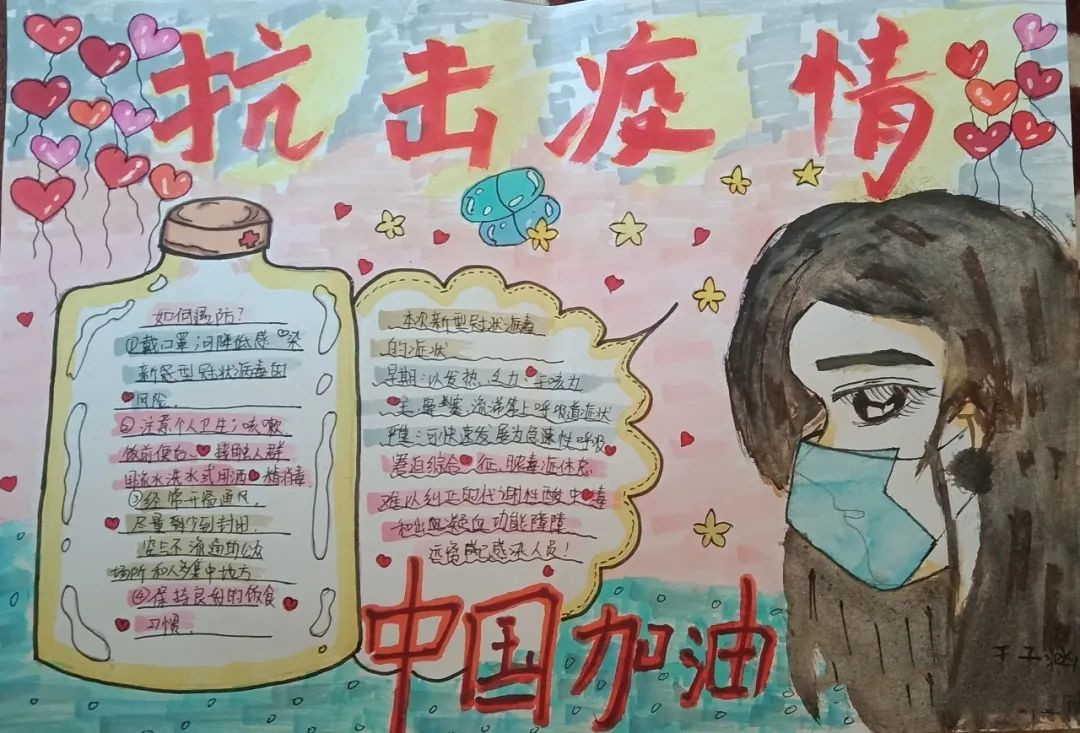 抗击疫情
如何预防?
①戴口罩;可降低感染
新冠型冠状病毒的
风险
②注意个人卫生;咳嗽
饭前便后、接触人群
用流水洗水式用洒精消毒
③经常开窗通风,
尽量减少到封闭,
空气不流通的公众
场所和人多集中地方
④保持良好的饮食
习惯.
本次新型冠状病毒
的症状
早期:以发热,乏力、干咳为
主,鼻塞,流涕等上呼吸道症状
严重:可快速发展为急速性呼吸
窘迫综合征、脓毒症休克
难以纠正的代谢性酸中毒
和出血凝血功能障障
远离 感染人员!
中国加油